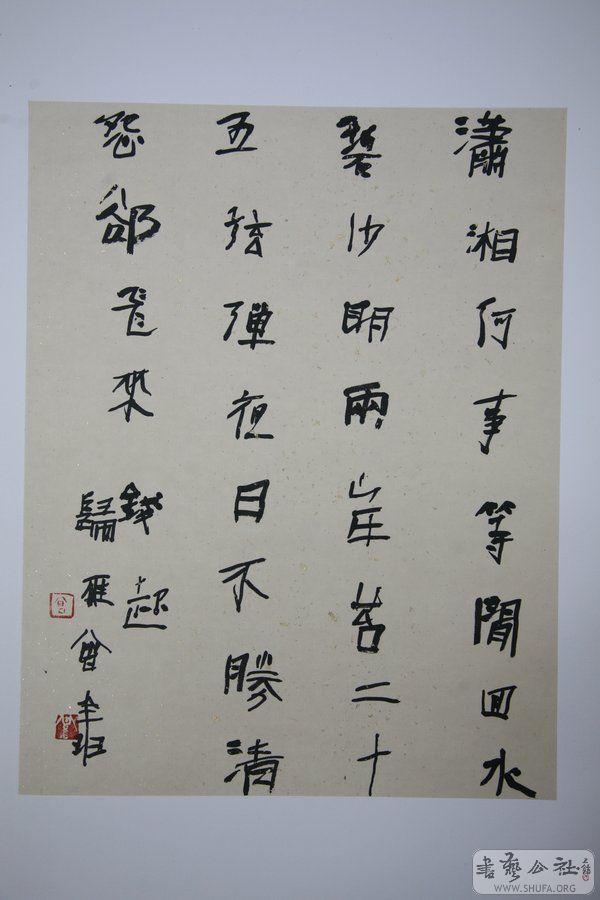 瀟湘何事等閒回水
碧沙明兩岸苔二十
五弦彈夜日不勝清
怨卻飛來
錢起
歸雁 曾
書藝公社
WWW.SHUFA.ORG